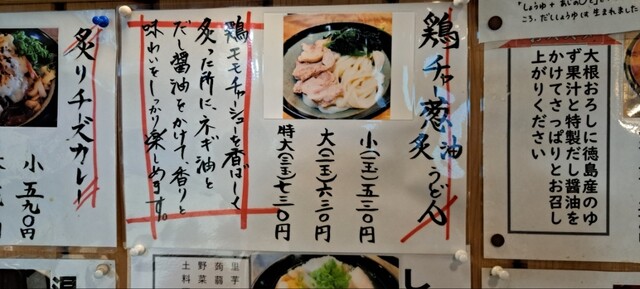 ころ、だししょうゆは生まれました
大根おろしに徳島産のゆ
ず果汁と特製だし醤油を
かけてさっぱりとお召し
上がりください
鶏チャー葱油炙うどん
小(一玉)五三〇円
大(二玉)六三〇円
特大(三玉)七三〇円
鶏モモチャーシューを香ばしく
炙った所に、ネギ油と
だし醤油をかけて、香りと
味わいをしっかり楽しめます。
炙りチーズカレー
小 五九〇円
し
里芋
蒟蒻
野菜
土料